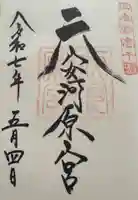 天安河原宮
令和七年 五月四日